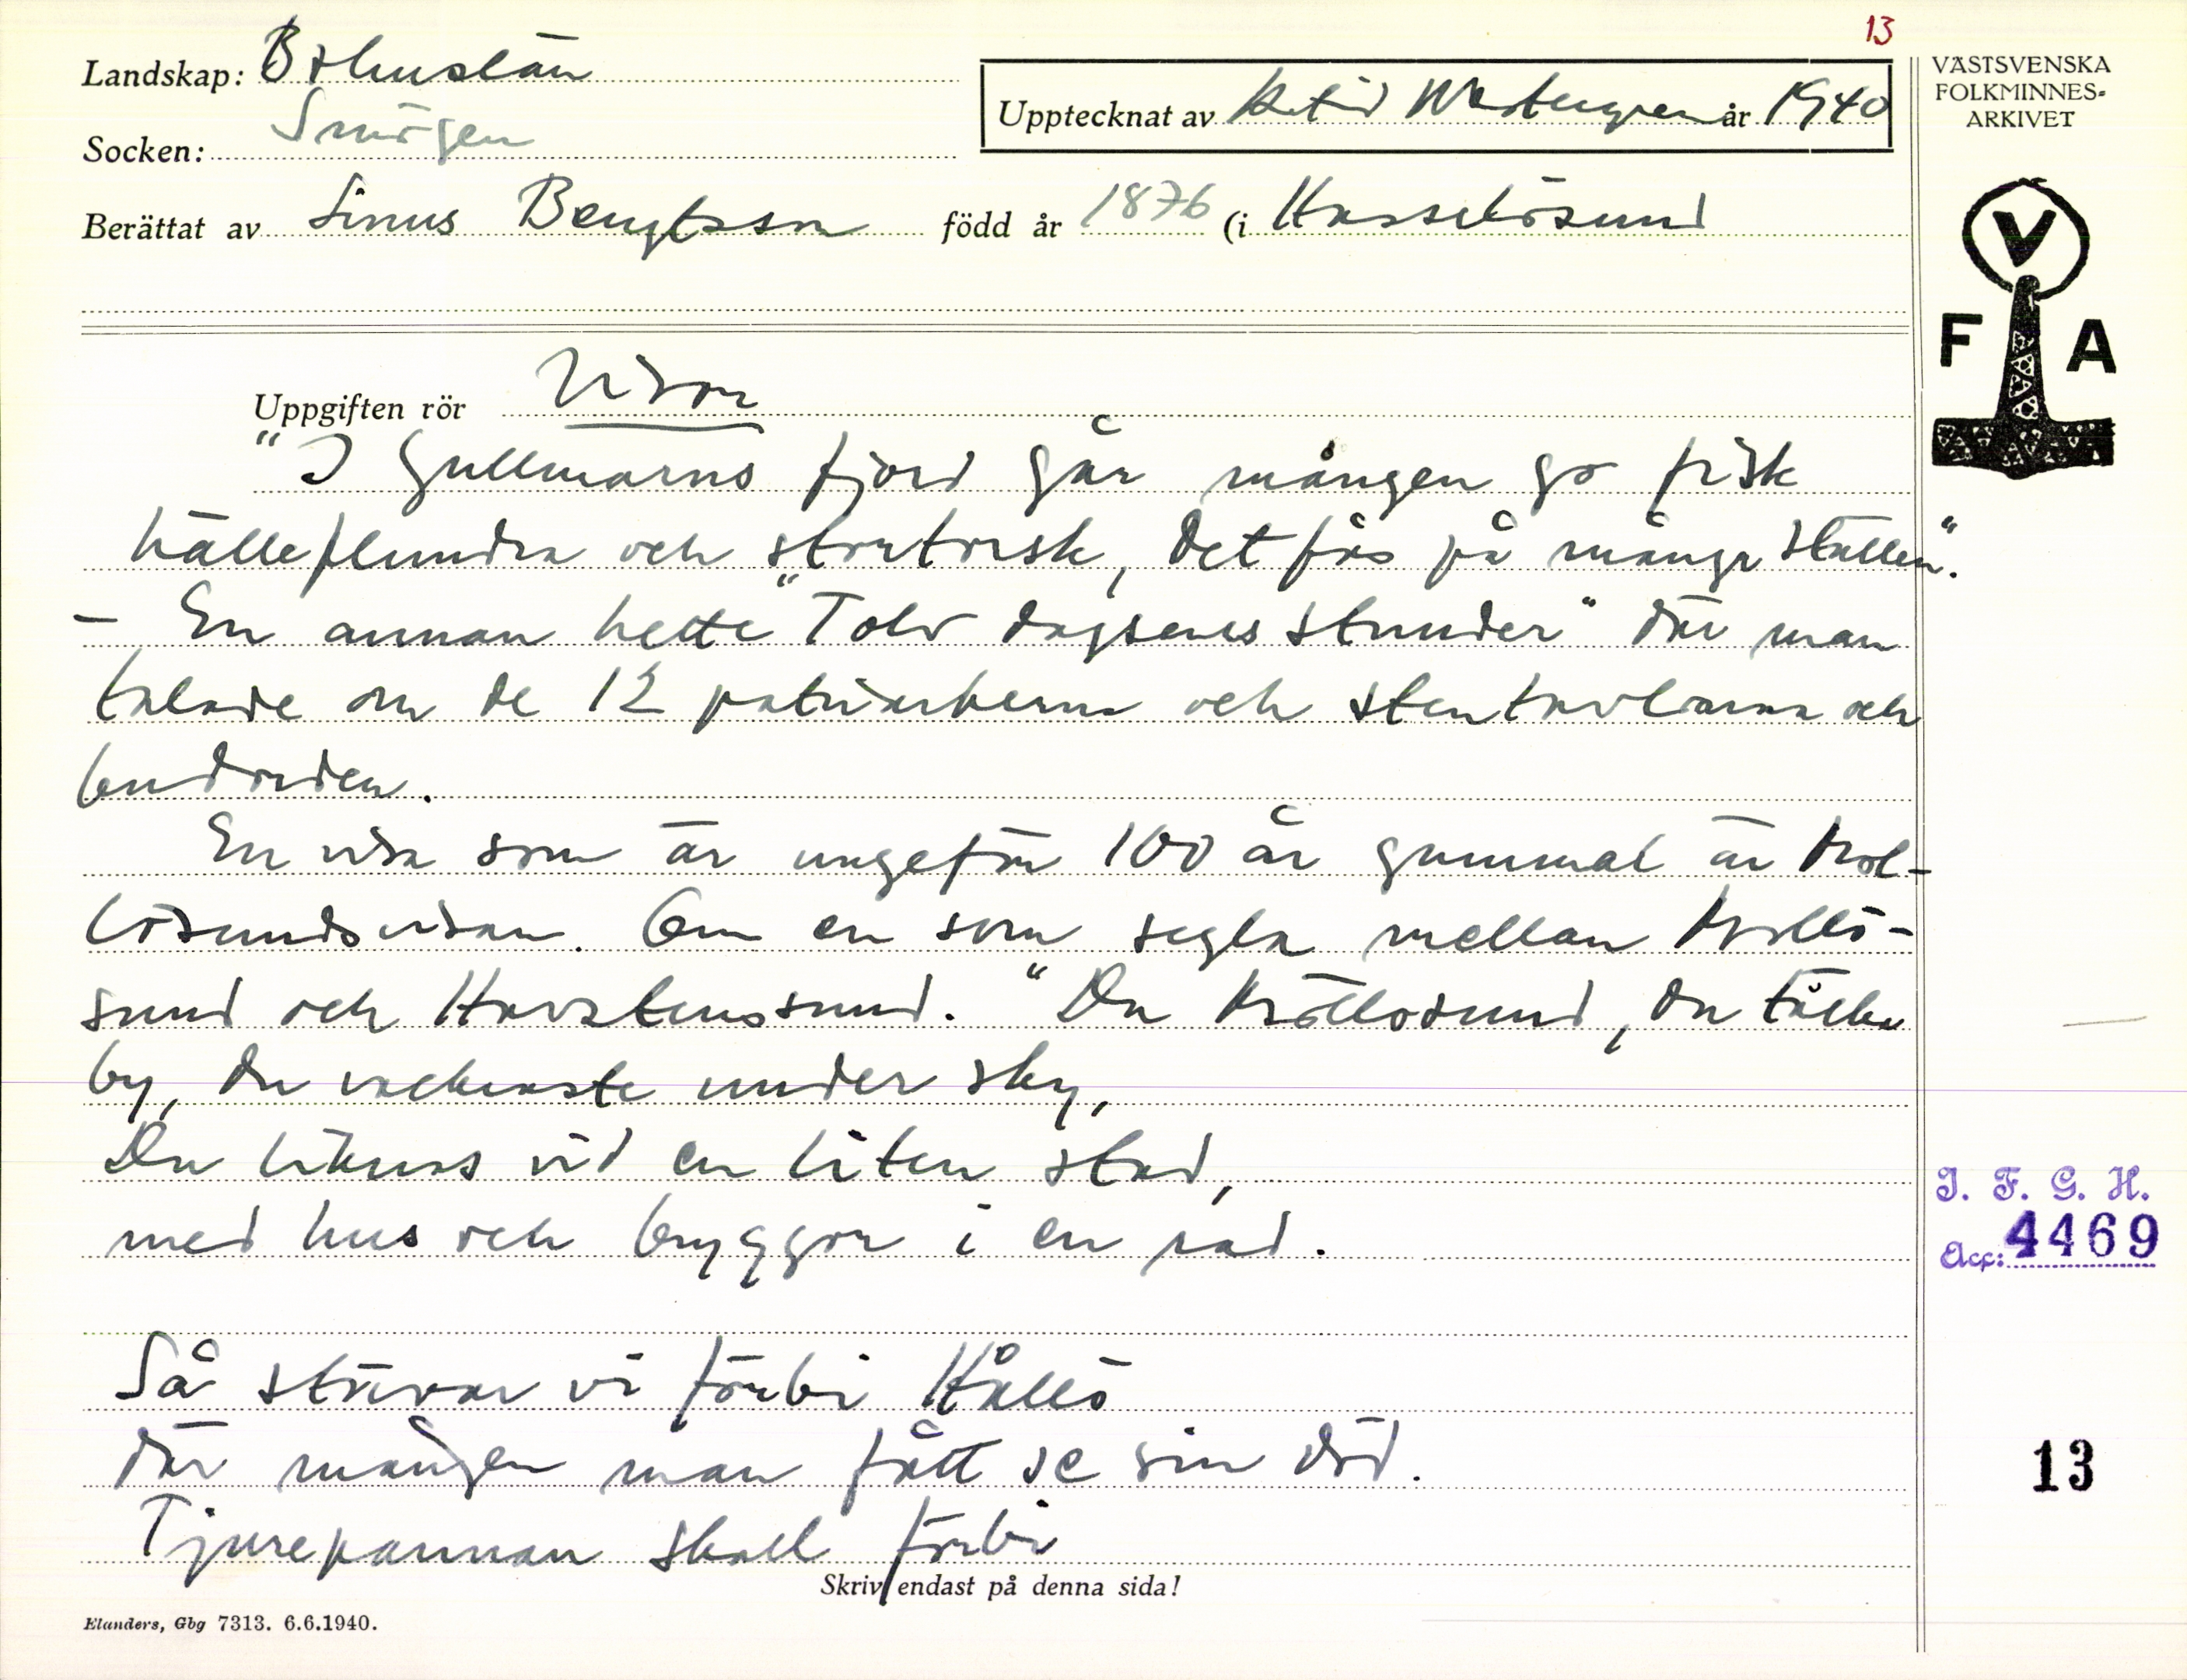 13
Landskap: Bohuslän
Socken: Smögen
Upptecknat av Ketid Westergren år 1940
Berättat av Linus Bengtsson född år 1876 (i Hasselösund
VÄSTSVENSKA
FOLKMINNES-
ARKIVET
V
F A
Uppgiften rör Visor
"I Gullmarns fjord går mången go fisk
hälleflundra och stortorsk, det fås på många ställen".
- En annan hette "Tolv dagsens stunder" där man
talade om de 12 patriarkerna och stentavlorna och
budorden.
En visa som är ungefär 100 år gammal är Mol-
lösundsvisan. Om en som segla mellan Mollö-
sund och Havstenssund. "Du Möllosund, du täcka
by, du vackraste under sky,
Du liknas vid en liten stad,
med hus och bryggor i en rad.
Så strävar vi förbi Hållö
där mången man fått se sin död.
Tjurepannan skall förbi
Skriv endast på denna sida!
Elanders, Gbg 7313. 6.6.1940.
I. F. G. H.
Acc: 4469
13